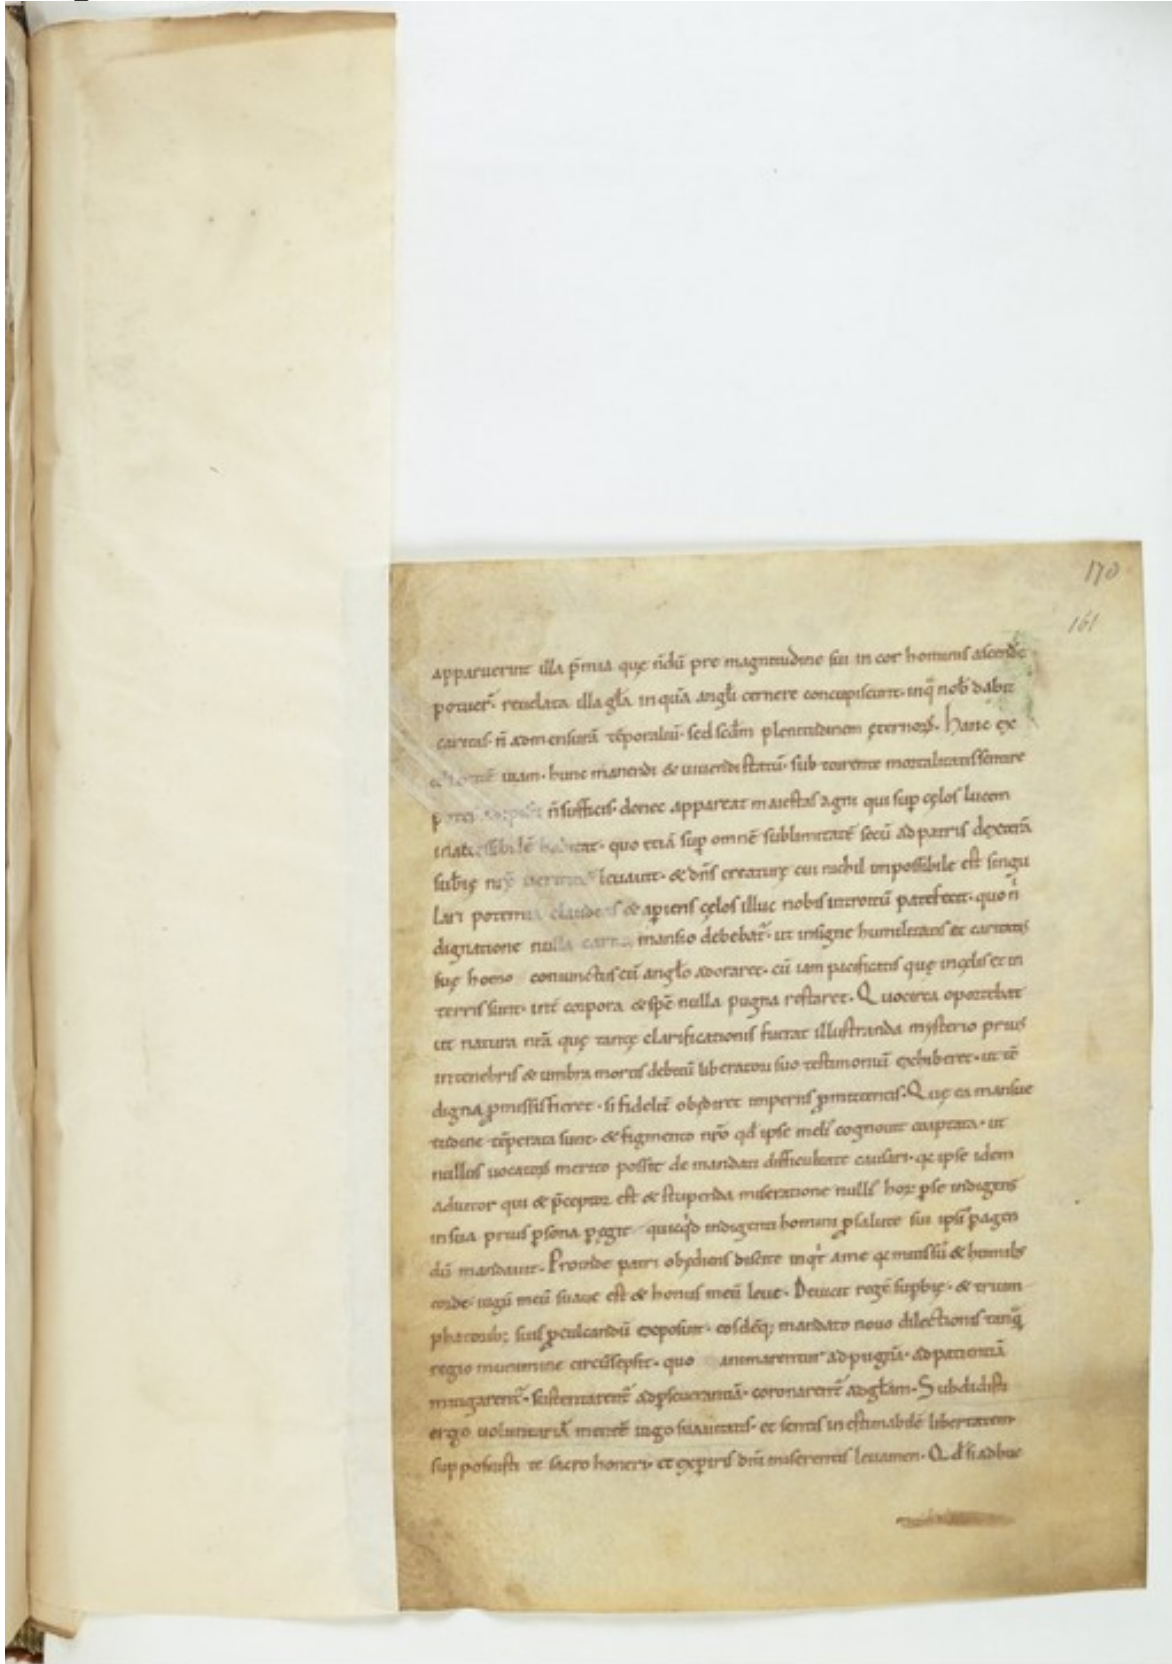 170
161
apparuerint illa p̄mia quę n̄dū pre magnitudine sui in cor hominis ascendẽ
potuer̃· reuelata illa gl̃a in quā angl̃i cernere concupiscunt· inq̄ nob̃ dabit
caritas· n̄ ad mensurā tēporaliū· sed scd̃m plenitudinem ęternorꝝ. Hanc ex
uiam· hunc manendi & uiuendi statū· sub torrente mortalitatis sentire
n̄ sufficis· donec appareat maiestas agni qui sup̱ cęlos lucem
inaccessibilē habitat· quo etiā sup̱ omnē sublimitatē secū ad patris dexterā
leuauit· & dn̄s creaturę cui nichil impossibile est singu
lari potentia claudens & ap̱iens cęlos illuc nobis introitū patefecit· quo n̄
dignatione nulla carni mansio debebat̃· ut insigne humilitatis et caritatis
suę homo coniunctus cū angl̃o adoraret· cū iam pacificatis quę in cęlis et in
terris sunt· int̃ corpora & sp̄c̄ nulla pugna restaret. Quocirca oportebat
ut natura nr̃a quę tantę clarificationis fuerat illustranda mysterio prius
in tenebris & umbra mortis debitū liberatori suo testimoniū exhiberet· ut &
digna ꝓmissis fieret· si fidelit̃ obędiret imperiis ꝓmittentis. Quę ea mansue
tudine tēperata sunt· & figmento nr̃o qd̃ ipse meli᷒ cognouit coaptata· ut
nullus uocatorꝝ merito possit de mandati difficultate causari· qc̄ ipse idem
adiutor qui & p̄ceptor est & stupenda miseratione nulli᷒ horꝝ p̱ se indigens
in sua prius p̱sona p̱egit quicq͛d indigenti homini ꝓ salute sui ipsi᷒ p̱agen
dū mandauit. Proinde patri obędiens discite inq͛t a me qc̄ mitis sū & humilis
corde· iugū meū suaue est & honus meū leue. Deuicit regē sup̱bię· & trium
phatorib; suis ꝓculcandū exposuit· eosdēq; mandato nouo dilectionis tanq̄
regio munimine circūsepsit· quo animarentur ad pugnā· ad patientiā
mitigarent̃· sustentarent̃ ad p̱seuerantiā· coronarent̃ ad gl̃am. Subdidisti
ergo uoluntariā mentē iugo suauitatis· et sentis inestimabilē libertatem
supposuisti te sacro honeri· et exp̱iris dn̄i miserentis leuamen. Qd̃ si adhuc